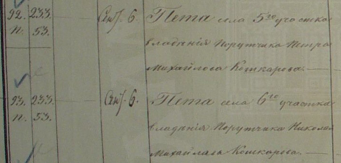 92. 233. Скј. 6. Пета села 5го участка
п. 53. владѣнія Порутчика Петра
Михайлова Кошкарова.
93. 233. 6. Пета села 6го участка
п. 53. владѣнія Порутчика Николая
Михайлова Кошкарова.